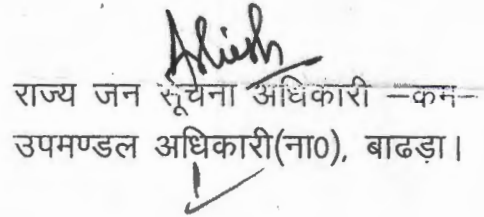 Ashish
राज्य जन सूचना अधिकारी –कम–
उपमण्डल अधिकारी(ना0), बाढड़ा।